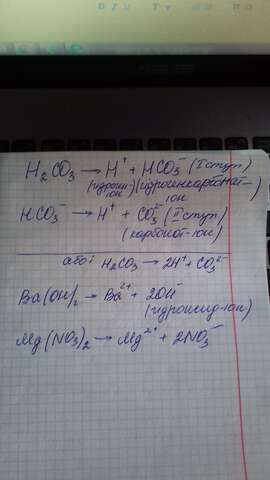 H₂CO₃ → H⁺ + HCO₃⁻ (I ступ)
(гідроген-іон) (гідрогенкарбонат-іон)
HCO₃⁻ → H⁺ + CO₃²⁻ (II ступ)
(карбонат-іон)
або: H₂CO₃ → 2H⁺ + CO₃²⁻
Ba(OH)₂ → Ba²⁺ + 2OH⁻
(гідроксид-іон)
Mg(NO₃)₂ → Mg²⁺ + 2NO₃⁻